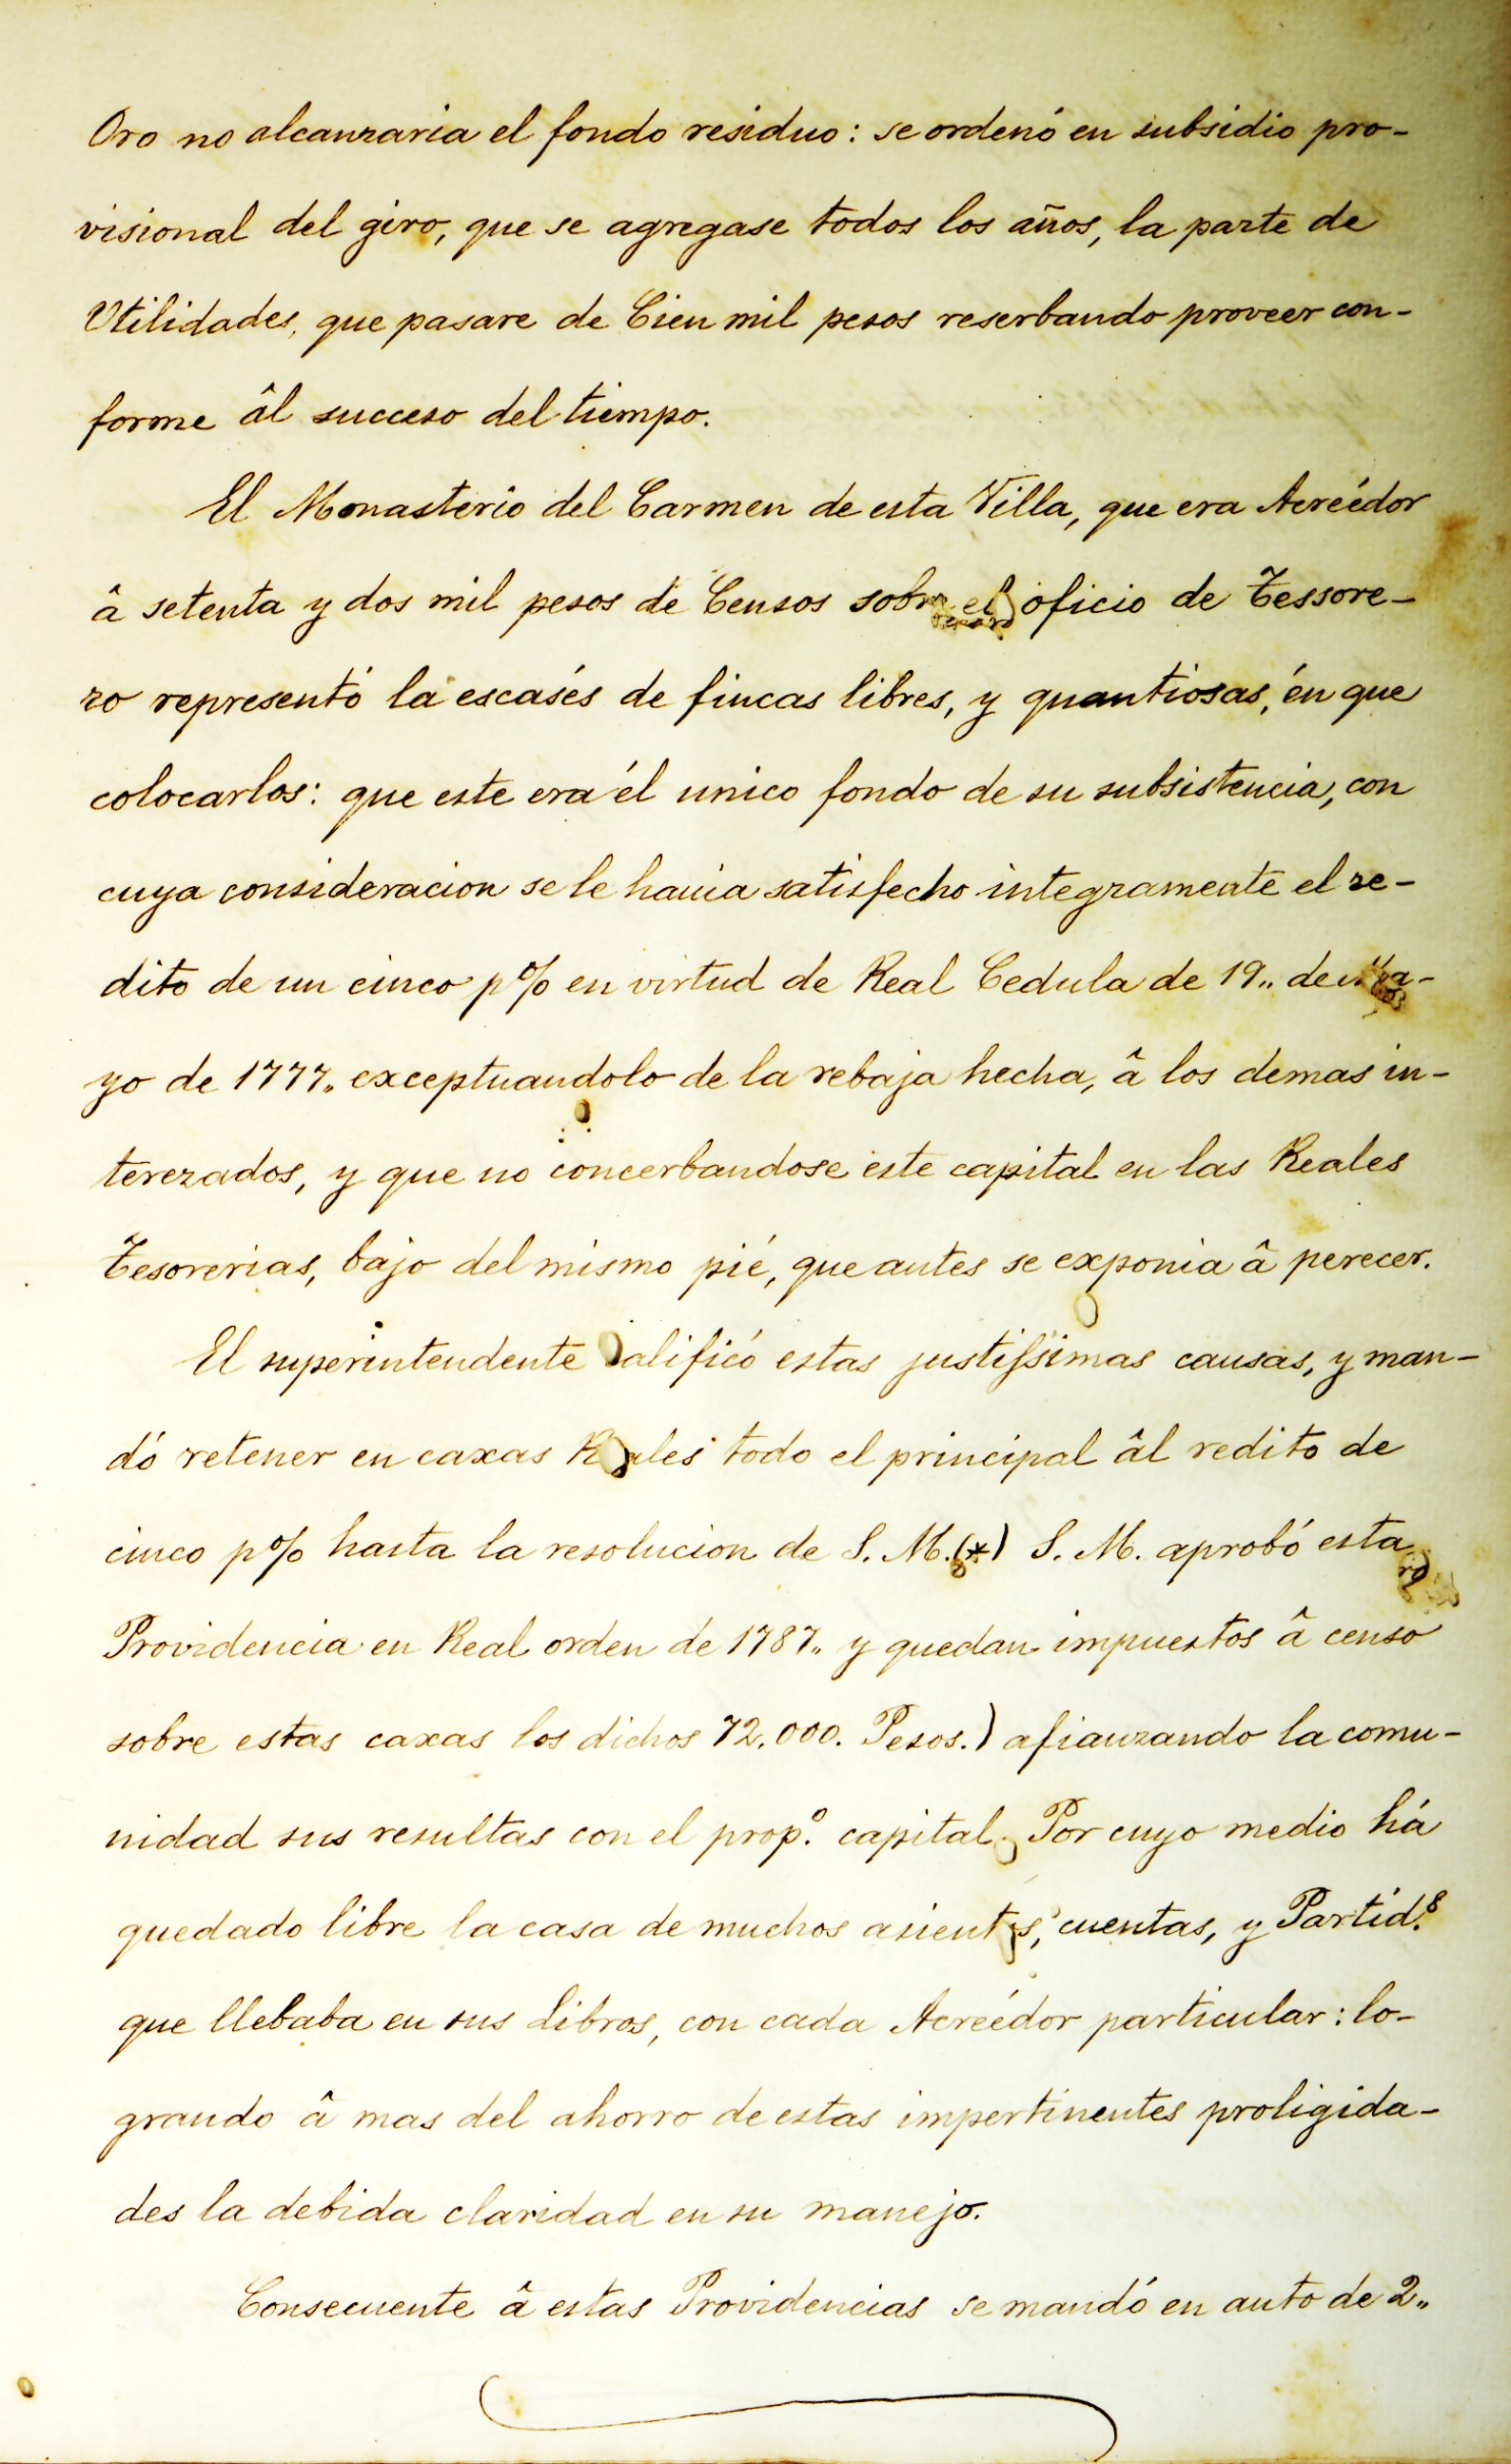 Oro no alcanzaria el fondo residuo: se ordenó en subsidio pro-
visional del giro, que se agregase todos los años, la parte de
Utilidades, que pasare de Cien mil pesos reserbando proveer con-
forme âl succeso del tiempo.
El Monasterio del Carmen de esta Villa, que era Acreédor
â setenta y dos mil pesos de Censos sobre el oficio de Tessore-
ro representó la escasés de fincas libres, y quantiosas, én que
colocarlos: que este era él unico fondo de su subsistencia, con
cuya consideracion se le havia satisfecho integramente el re-
dito de un cinco p% en virtud de Real Cedula de 19,, de Ma-
yo de 1777,, exceptuandolo de la rebaja hecha, â los demas in-
terezados, y que no concerbandose este capital en las Reales
Tesorerias, bajo del mismo pié, que antes se exponia â perecer.
El superintendente calificó estas justissimas causas, y man-
dó retener en caxas Reales todo el principal âl redito de
cinco p% hasta la resolucion de S. M. (*) S. M. aprobó esta
Providencia en Real orden de 1787,, y quedan impuestos â censo
sobre estas caxas los dichos 72.000. Pesos.) afianzando la comu-
nidad sus resultas con el prop.º capital. Por cuyo medio há
quedado libre la casa de muchos asientos, cuentas, y Partid.s
que llebaba en sus Libros, con cada Acreédor particular: lo-
grando â mas del ahorro de estas impertinentes proligida-
des la debida claridad en su manejo.
Consecuente â estas Providencias se mandó en auto de 2,,